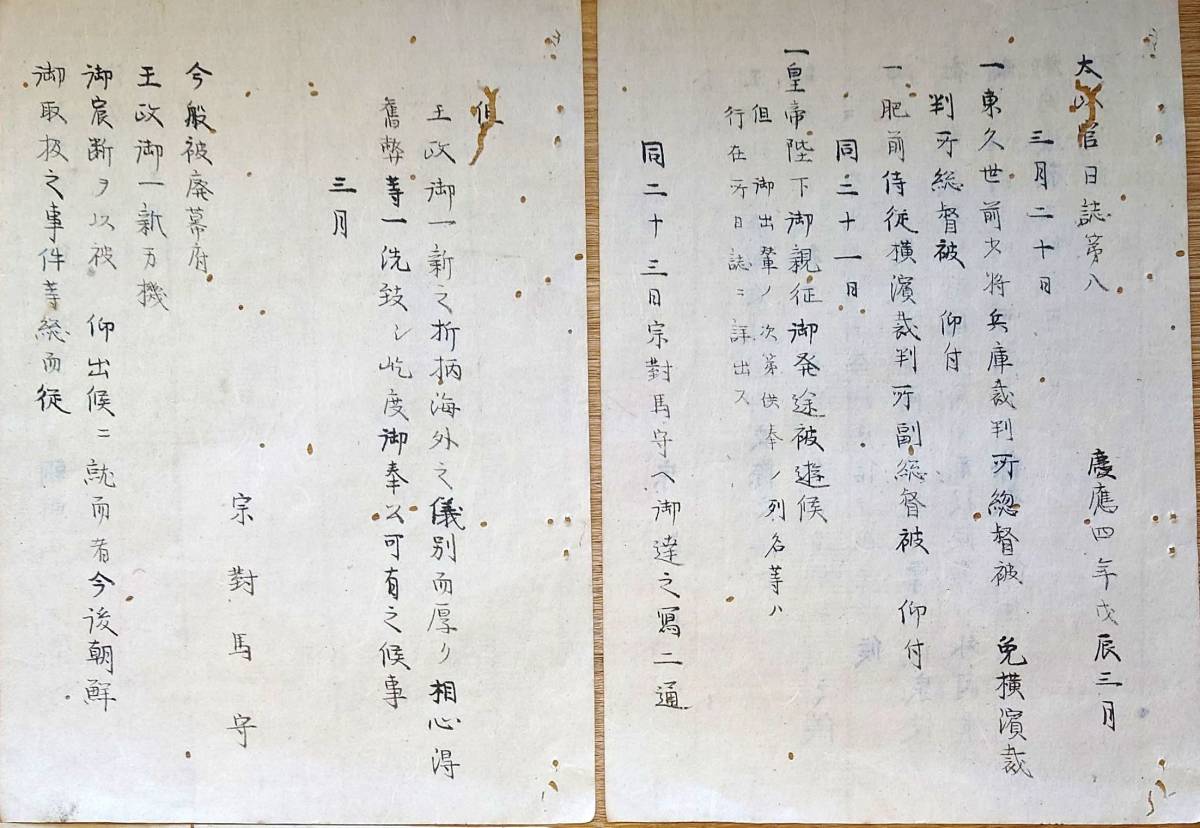 太政官日誌第八
慶應四年戊辰三月
三月二十日
一東久世前少将兵庫裁判所総督被 免横濱裁
判所総督被 仰付
一肥前侍従横濱裁判所副総督被 仰付
同二十一日
一皇帝陛下御親征御発途被遊候
但御出輦ノ次第供奉ノ列名等ハ
行在所日誌ニ詳出ス
同二十三日宗對馬守ヘ御達之寫二通
但
王政御一新之折柄海外之儀別而厚ク相心得
舊弊等一洗致シ屹度御奉公可有之候事
三月
宗對馬守
今般被廃幕府
王政御一新万機
御宸断ヲ以被 仰出候ニ就而者今後朝鮮
御取扱之事件等総而従